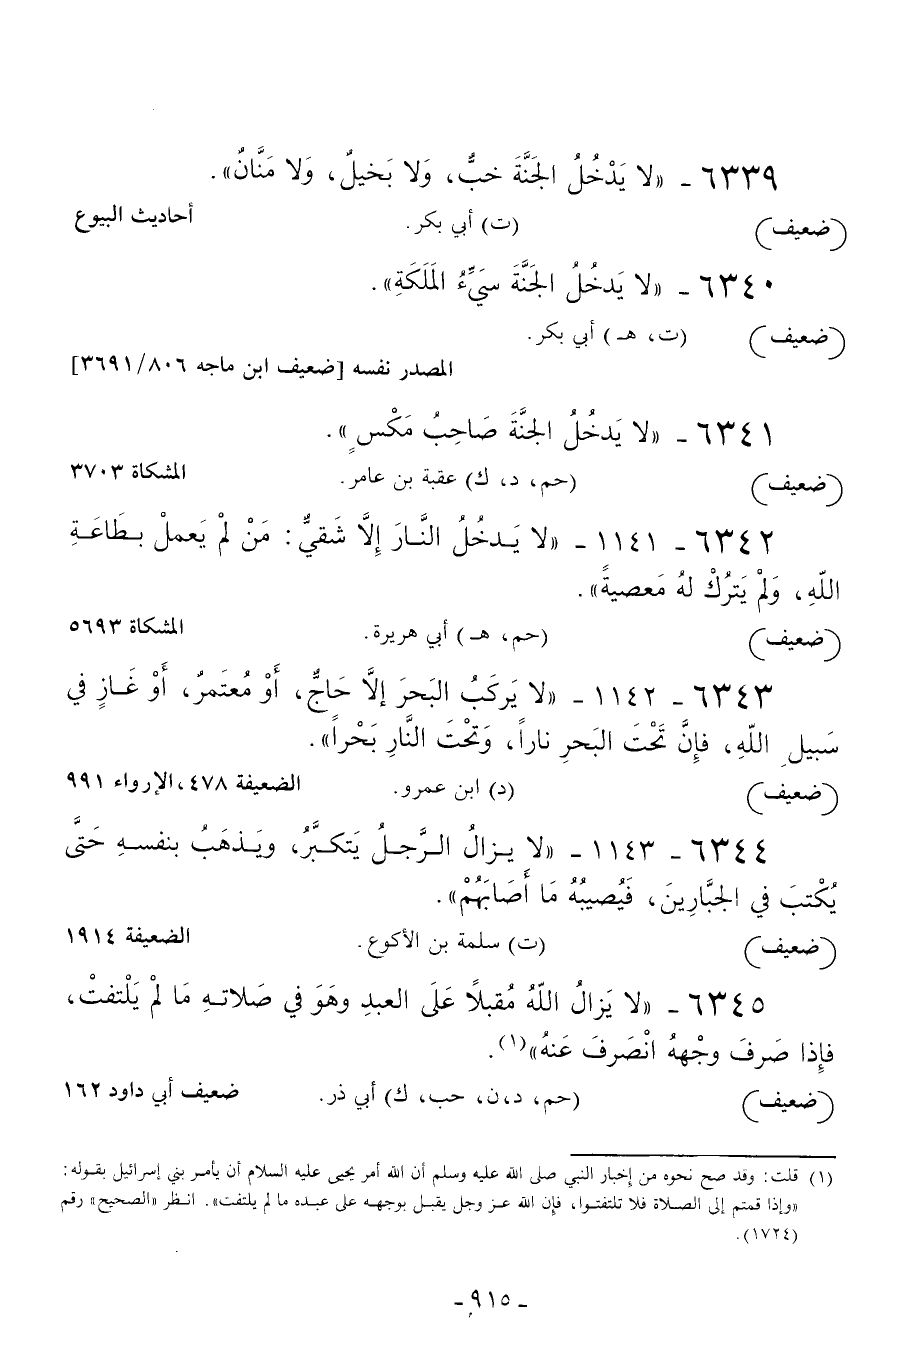 ٦٣٣٩ ـ «لا يَدْخُلُ الجَنَّةَ خبُّ، وَلا بَخيلٌ، وَلا مَنَّانٌ».
(ضعيف) (ت) أبي بكر. أحاديث البيوع
٦٣٤٠ ـ «لا يَدخُلُ الجَنَّةَ سَيِّءُ المَلَكَةِ».
(ضعيف) (ت، هـ) أبي بكر.
المصدر نفسه [ضعيف ابن ماجه ٣٦٩١/٨٠٦]
٦٣٤١ ـ «لا يَدخُلُ الجنَّةَ صَاحِبُ مَكْسٍ».
(ضعيف) (حم، د، ك) عقبة بن عامر. المشكاة ٣٧٠٣
٦٣٤٢ ـ ١١٤١ ـ «لا يَدخُلُ النَّارَ إِلَّا شَقيٌّ: مَنْ لمْ يَعملْ بطَاعَةِ
اللّهِ، وَلمْ يَترُكْ لهُ مَعصيةً».
(ضعيف) (حم، هـ) أبي هريرة. المشكاة ٥٦٩٣
٦٣٤٣ ـ ١١٤٢ ـ «لا يَركَبُ البَحرَ إلَّا حَاجٌّ، أَوْ مُعتَمرٌ، أَوْ غَازٍ في
سَبيلِ اللّهِ، فإنَّ تَحْتَ البَحرِ ناراً، وَتحْتَ النَّارِ بَحْراً».
(ضعيف) (د) ابن عمرو. الضعيفة ٤٧٨، الإرواء ٩٩١
٦٣٤٤ ـ ١١٤٣ ـ «لا يزالُ الرَّجلُ يَتكبَّرُ، ويَذهَبُ بنفسهِ حَتَّى
يُكْتبَ في الجَبَّارِينَ، فَيُصيبُهُ مَا أَصَابَهُمْ».
(ضعيف) (ت) سلمة بن الأكوع. الضعيفة ١٩١٤
٦٣٤٥ ـ «لا يَزالُ اللّهُ مُقبلاً عَلَى العبدِ وهَوَ في صَلاتهِ مَا لمْ يَلْتفتْ،
فإِذا صَرفَ وجْههُ انْصَرفَ عَنهُ»(١).
(ضعيف) (حم، د،ن، حب، ك) أبي ذر. ضعيف أبي داود ١٦٢
(١) قلت: وقد صح نحوه من إخبار النبي صلى الله عليه وسلم أن الله أمر يحيى عليه السلام أن يأمر بني إسرائيل بقوله:
«وإذا قمتم إلى الصلاة فلا تلتفتوا، فإن الله عز وجل يقبل بوجهه على عبده ما لم يلتفت». انظر «الصحيح» رقم
(١٧٢٤).
ـ ٩١٥ ـ